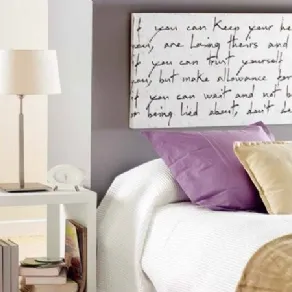 if you can keep your he
you, are losing theirs and
if you can trust yourself
you, but make allowance for
if you can wait and not b
or being lied about, don't de